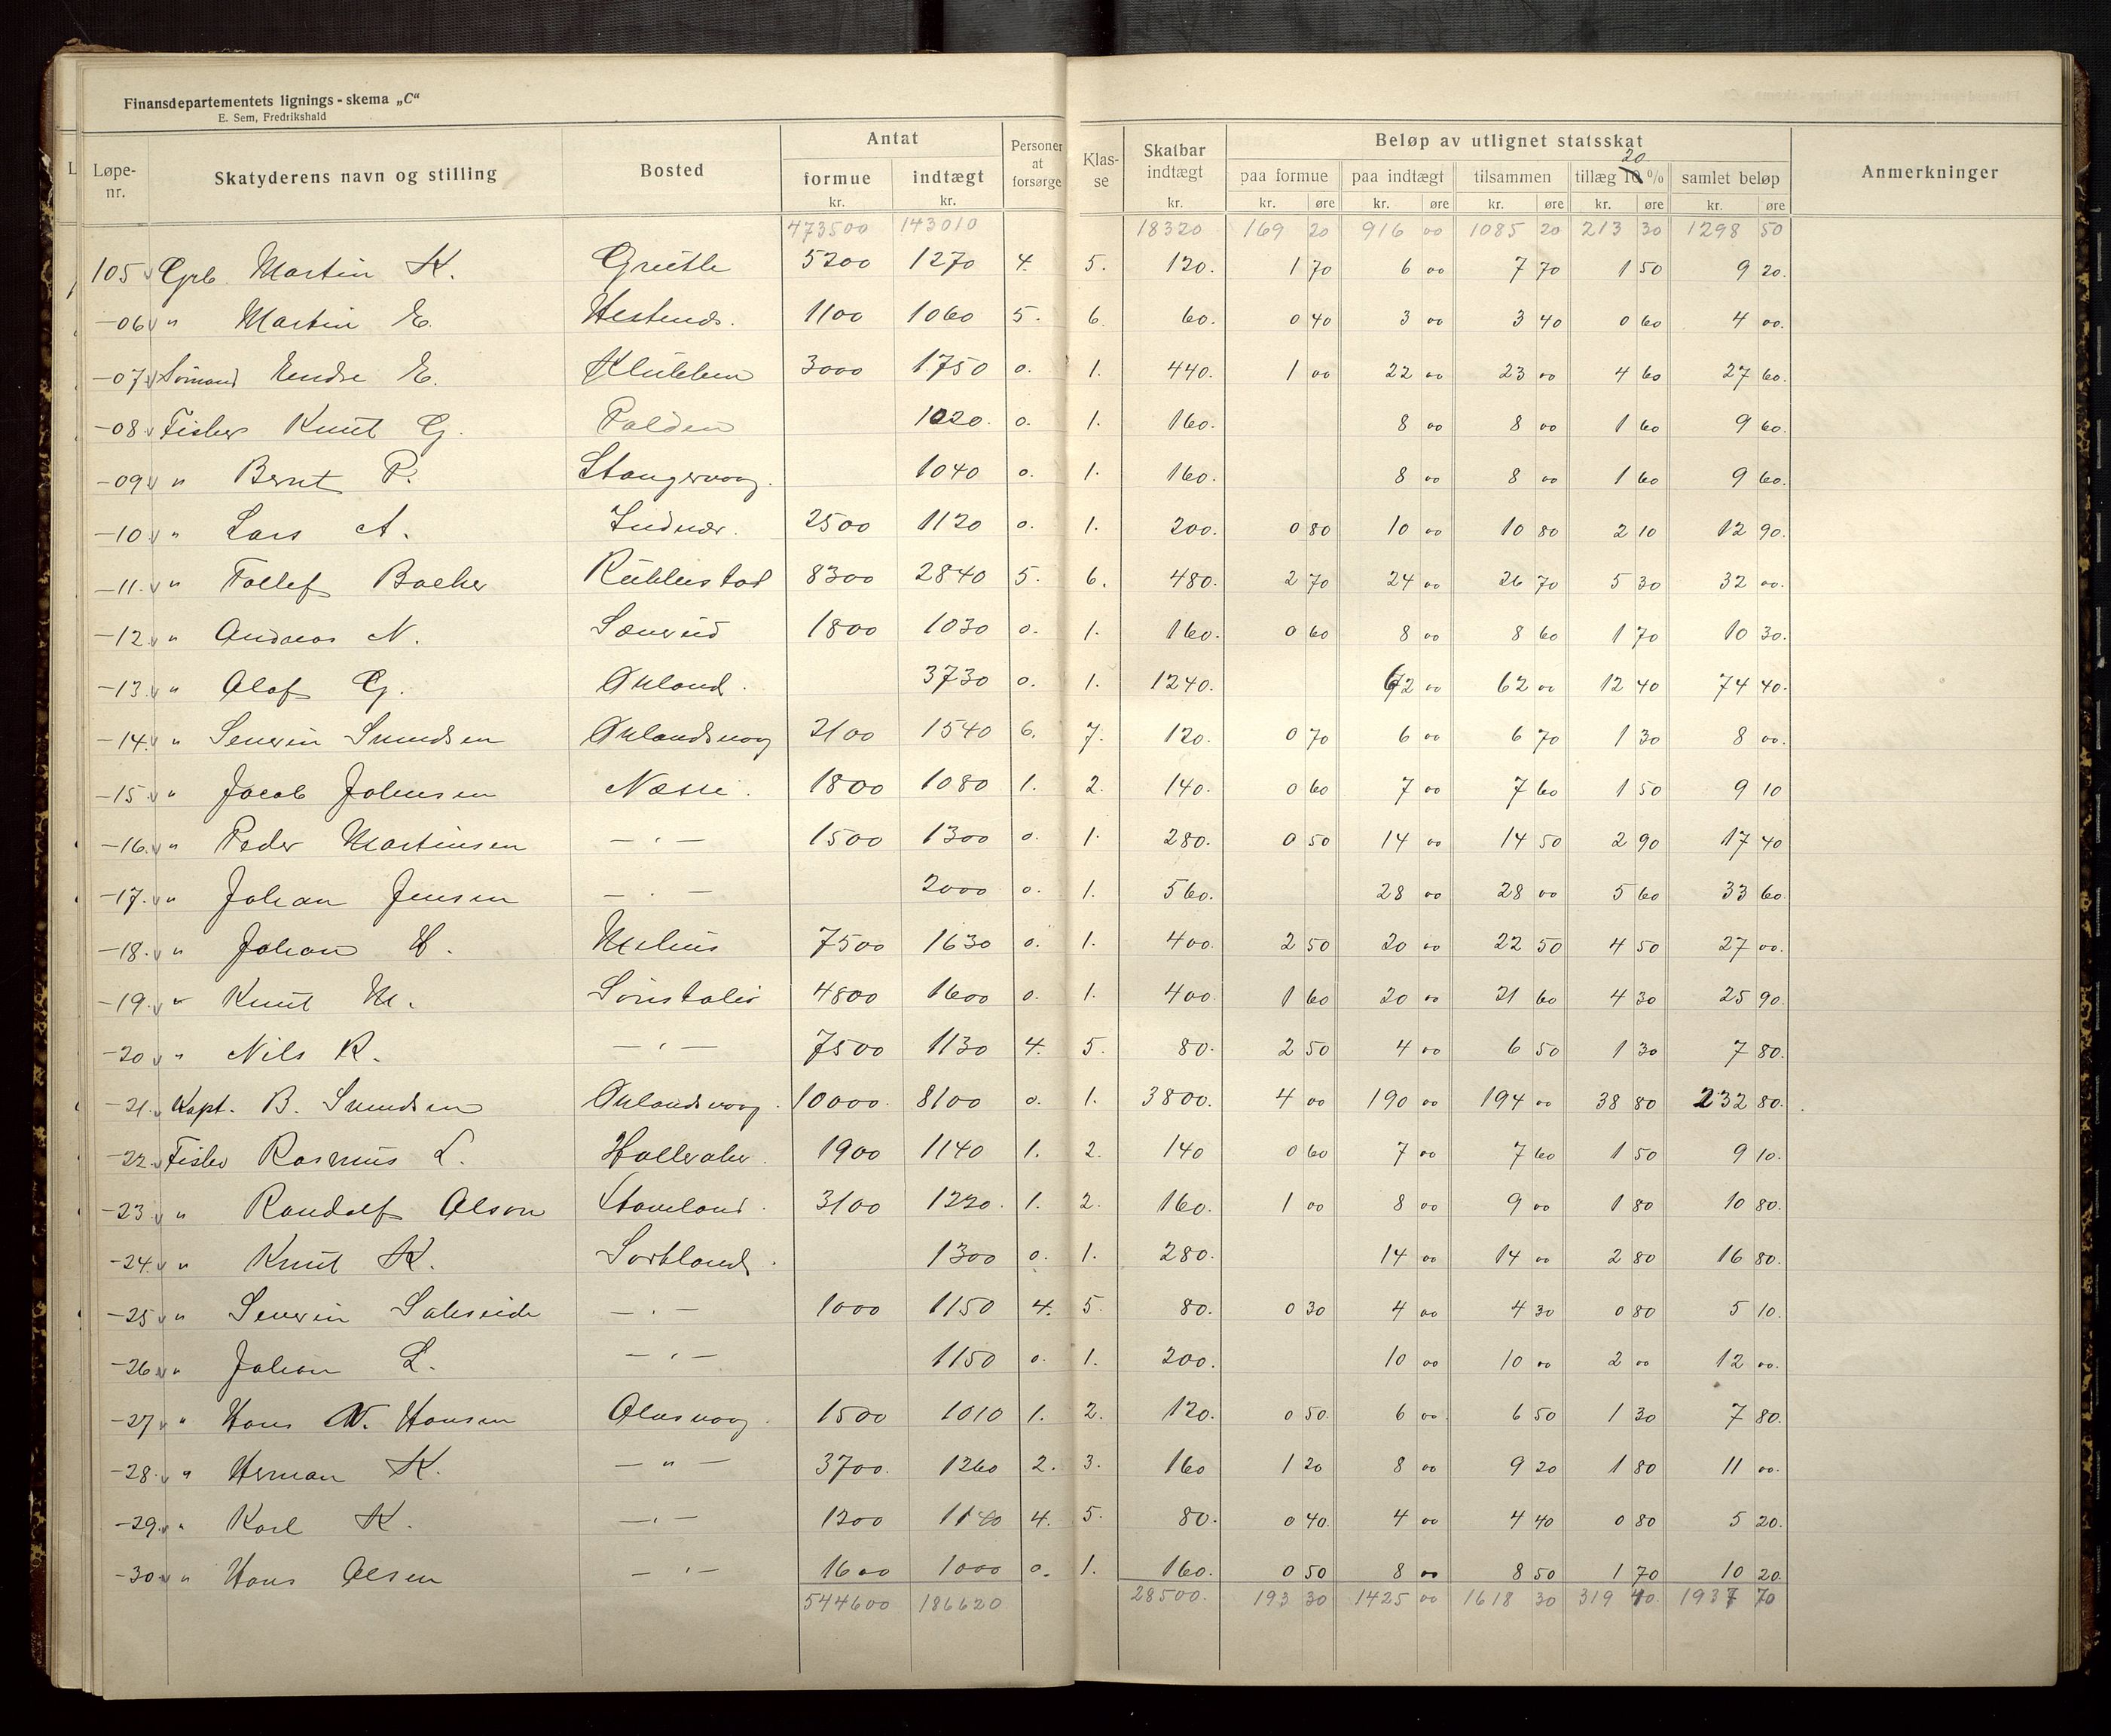 Finansdepartementets lignings-skema „C“
E. Sem, Fredrikshald
Løpe-nr. Skatyderens navn og stilling Bosted Antat formue kr. indtægt kr. Personer at forsørge Klas-se Skatbar indtægt kr. Beløp av utlignet statsskat paa formue kr. øre paa indtægt kr. øre tilsammen kr. øre tillæg 10 20 % kr. øre samlet beløp kr. øre Anmerkninger
473500 143010 18320 169 20 916 00 1085 20 213 30 1298 50
105 Grb. Martin K. Grütle 5200 1270 4. 5. 120. 1 70 6 00 7 70 1 50 9 20.
-06 " Martin E. 1100 1060 5. 6. 60. 0 40 3 00 3 40 0 60 4 00.
-07 Sømand Endre E. Klubben 3000 1750 0. 1. 440. 1 00 22 00 23 00 4 60 27 60.
-08 Fisker Knut G. Folden 1020. 0. 1. 160. 8 00 8 00 1 60 9 60.
-09 " Bernt P. Stangervaag. 1040 0. 1. 160. 8 00 8 00 1 60 9 60.
-10 " Lars A. Indvær. 2500 1120 0. 1. 200. 0 80 10 00 10 80 2 10 12 90.
-11. " Tollef 8300 2840 5. 6. 480. 2 70 24 00 26 70 5 30 32 00.
-12 " Andreas N. Sønerud 1800 1030 0. 1. 160. 0 60 8 00 8 60 1 70 10 30.
-13. " Olaf G. Økland. 3730 0. 1. 1240. 62 00 62 00 12 40 74 40.
-14. " Severin Svendsen Øklandsvaag 2100 1540 6. 7. 120. 0 70 6 00 6 70 1 30 8 00.
-15. " Jacob Johnsen Næsse. 1800 1080 1. 2. 140. 0 60 7 00 7 60 1 50 9 10
-16. " Peder Martinsen — " — 1500 1300 0. 1. 280. 0 50 14 00 14 50 2 90 17 40
-17. " Johan Jensen — " — 2000 0. 1. 560. 28 00 28 00 5 60 33 60.
-18. " Johan H. Melhus 7500 1630 0. 1. 400. 2 50 20 00 22 50 4 50 27 00.
-19. " Knut M. 4800 1600 0. 1. 400. 1 60 20 00 21 60 4 30 25 90.
-20 " Nils R. — " — 7500 1130 4. 5. 80. 2 50 4 00 6 50 1 30 7 80.
-21. Kapt. B. Svendsen Øklandsvaag. 10000. 8100 0. 1. 3800. 4 00 190 00 194 00 38 80 232 80.
-22. Fisker Rasmus L. Halleraker. 1900 1140 1. 2. 140 0 60 7 00 7 60 1 50 9 10.
-23 " Randolf Olson Stavland. 3100 1220. 1. 2. 160. 1 00 8 00 9 00 1 80 10 80.
-24. " Knut K. Sortland. 1300 0. 1. 280. 14 00 14 00 2 80 16 80.
-25 " Severin Sakseide — " — 1000 1150 4. 5. 80. 0 30 4 00 4 30 0 80 5 10.
-26 " Johan L. — " — 1150 0. 1. 200. 10 00 10 00 2 00 12 00.
-27 " Hans N. Hansen Olasvaag. 1500 1010 1. 2. 120. 0 50. 6 00. 6 50 1 30 7 80.
-28. " Herman K. — " — 3700. 1260 2. 3. 160 1 20 8 00 9 20 1 80 11 00.
-29. " Karl K. — " — 1200 1140 4. 5. 80. 0 40. 4 00 4 40 0 80 5 20.
-30 " Hans Olsen — " — 1600 1000 0. 1. 160. 0 50 8 00 8 50 1 70 10 20.
544600 186620 28500. 193 30 1425 00 1618 30 319 40 1937 70